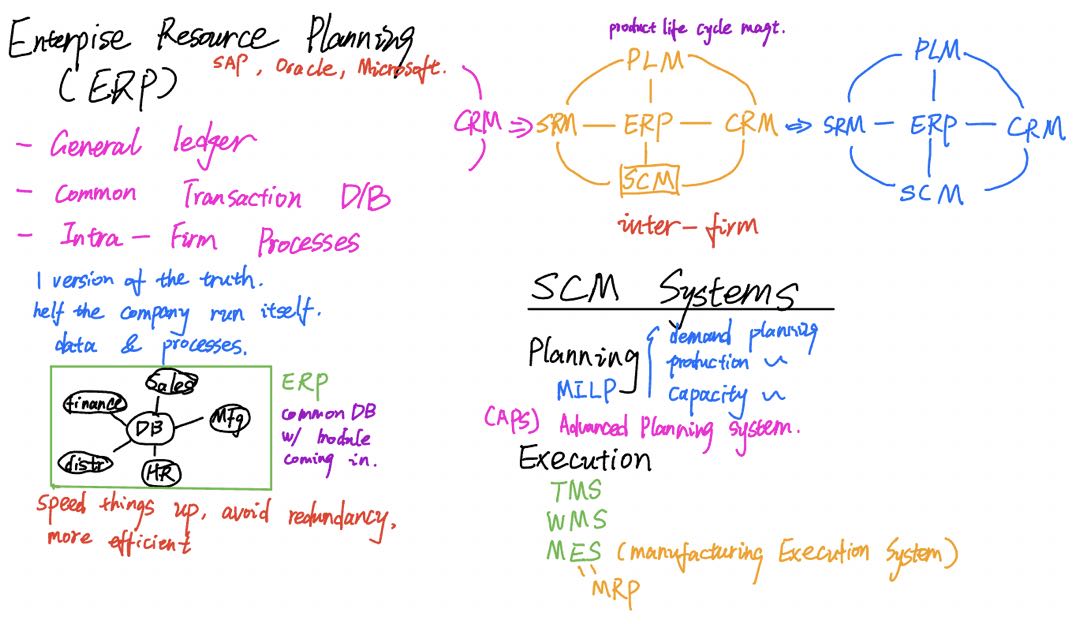 Enterpise Resource Planning
(ERP)
SAP, Oracle, Microsoft.
- General ledger
- Common Transaction D/B
- Intra-Firm Processes
1 version of the truth.
helf the company run itself.
data & processes.
Sales
finance
Mfg
DB
distr
HR
ERP
common DB
w/ module
coming in.
speed things up, avoid redundancy,
more efficient
product life cycle magt.
CRM ⇒
PLM
SRM — ERP — CRM
SCM
inter-firm
⇒
PLM
SRM — ERP — CRM
SCM
SCM Systems
Planning
MILP
demand planning
production ~
capacity ~
(APS) Advanced Planning system.
Execution
TMS
WMS
MES (manufacturing Execution System)
MRP